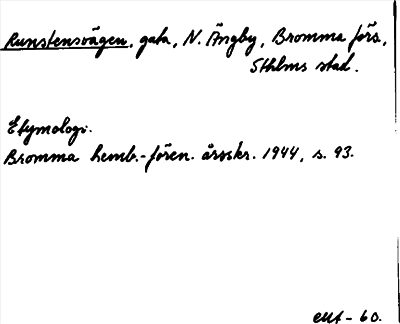 Runstensvägen, gata, N. Ängby, Bromma förs.,
Sthlms stad.
Etymologi.
Bromma hemb.-fören. årsskr. 1944, s. 93.
EUt - 60.